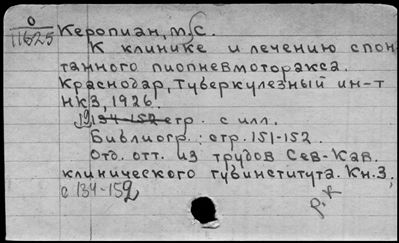 0
11625
Керопиан, т.С.
К клинике и лечению спон
танного пиопневмоторакса.
Краснодар, Туберкулезный ин-т
НКЗ, 1926.
19 134-152 стр. с илл.
Библиогр.: стр. 151-152.
Отд. отт. из трудов Сев-Кав.
клинического тубинститута. Кн. 3,
с 134-152